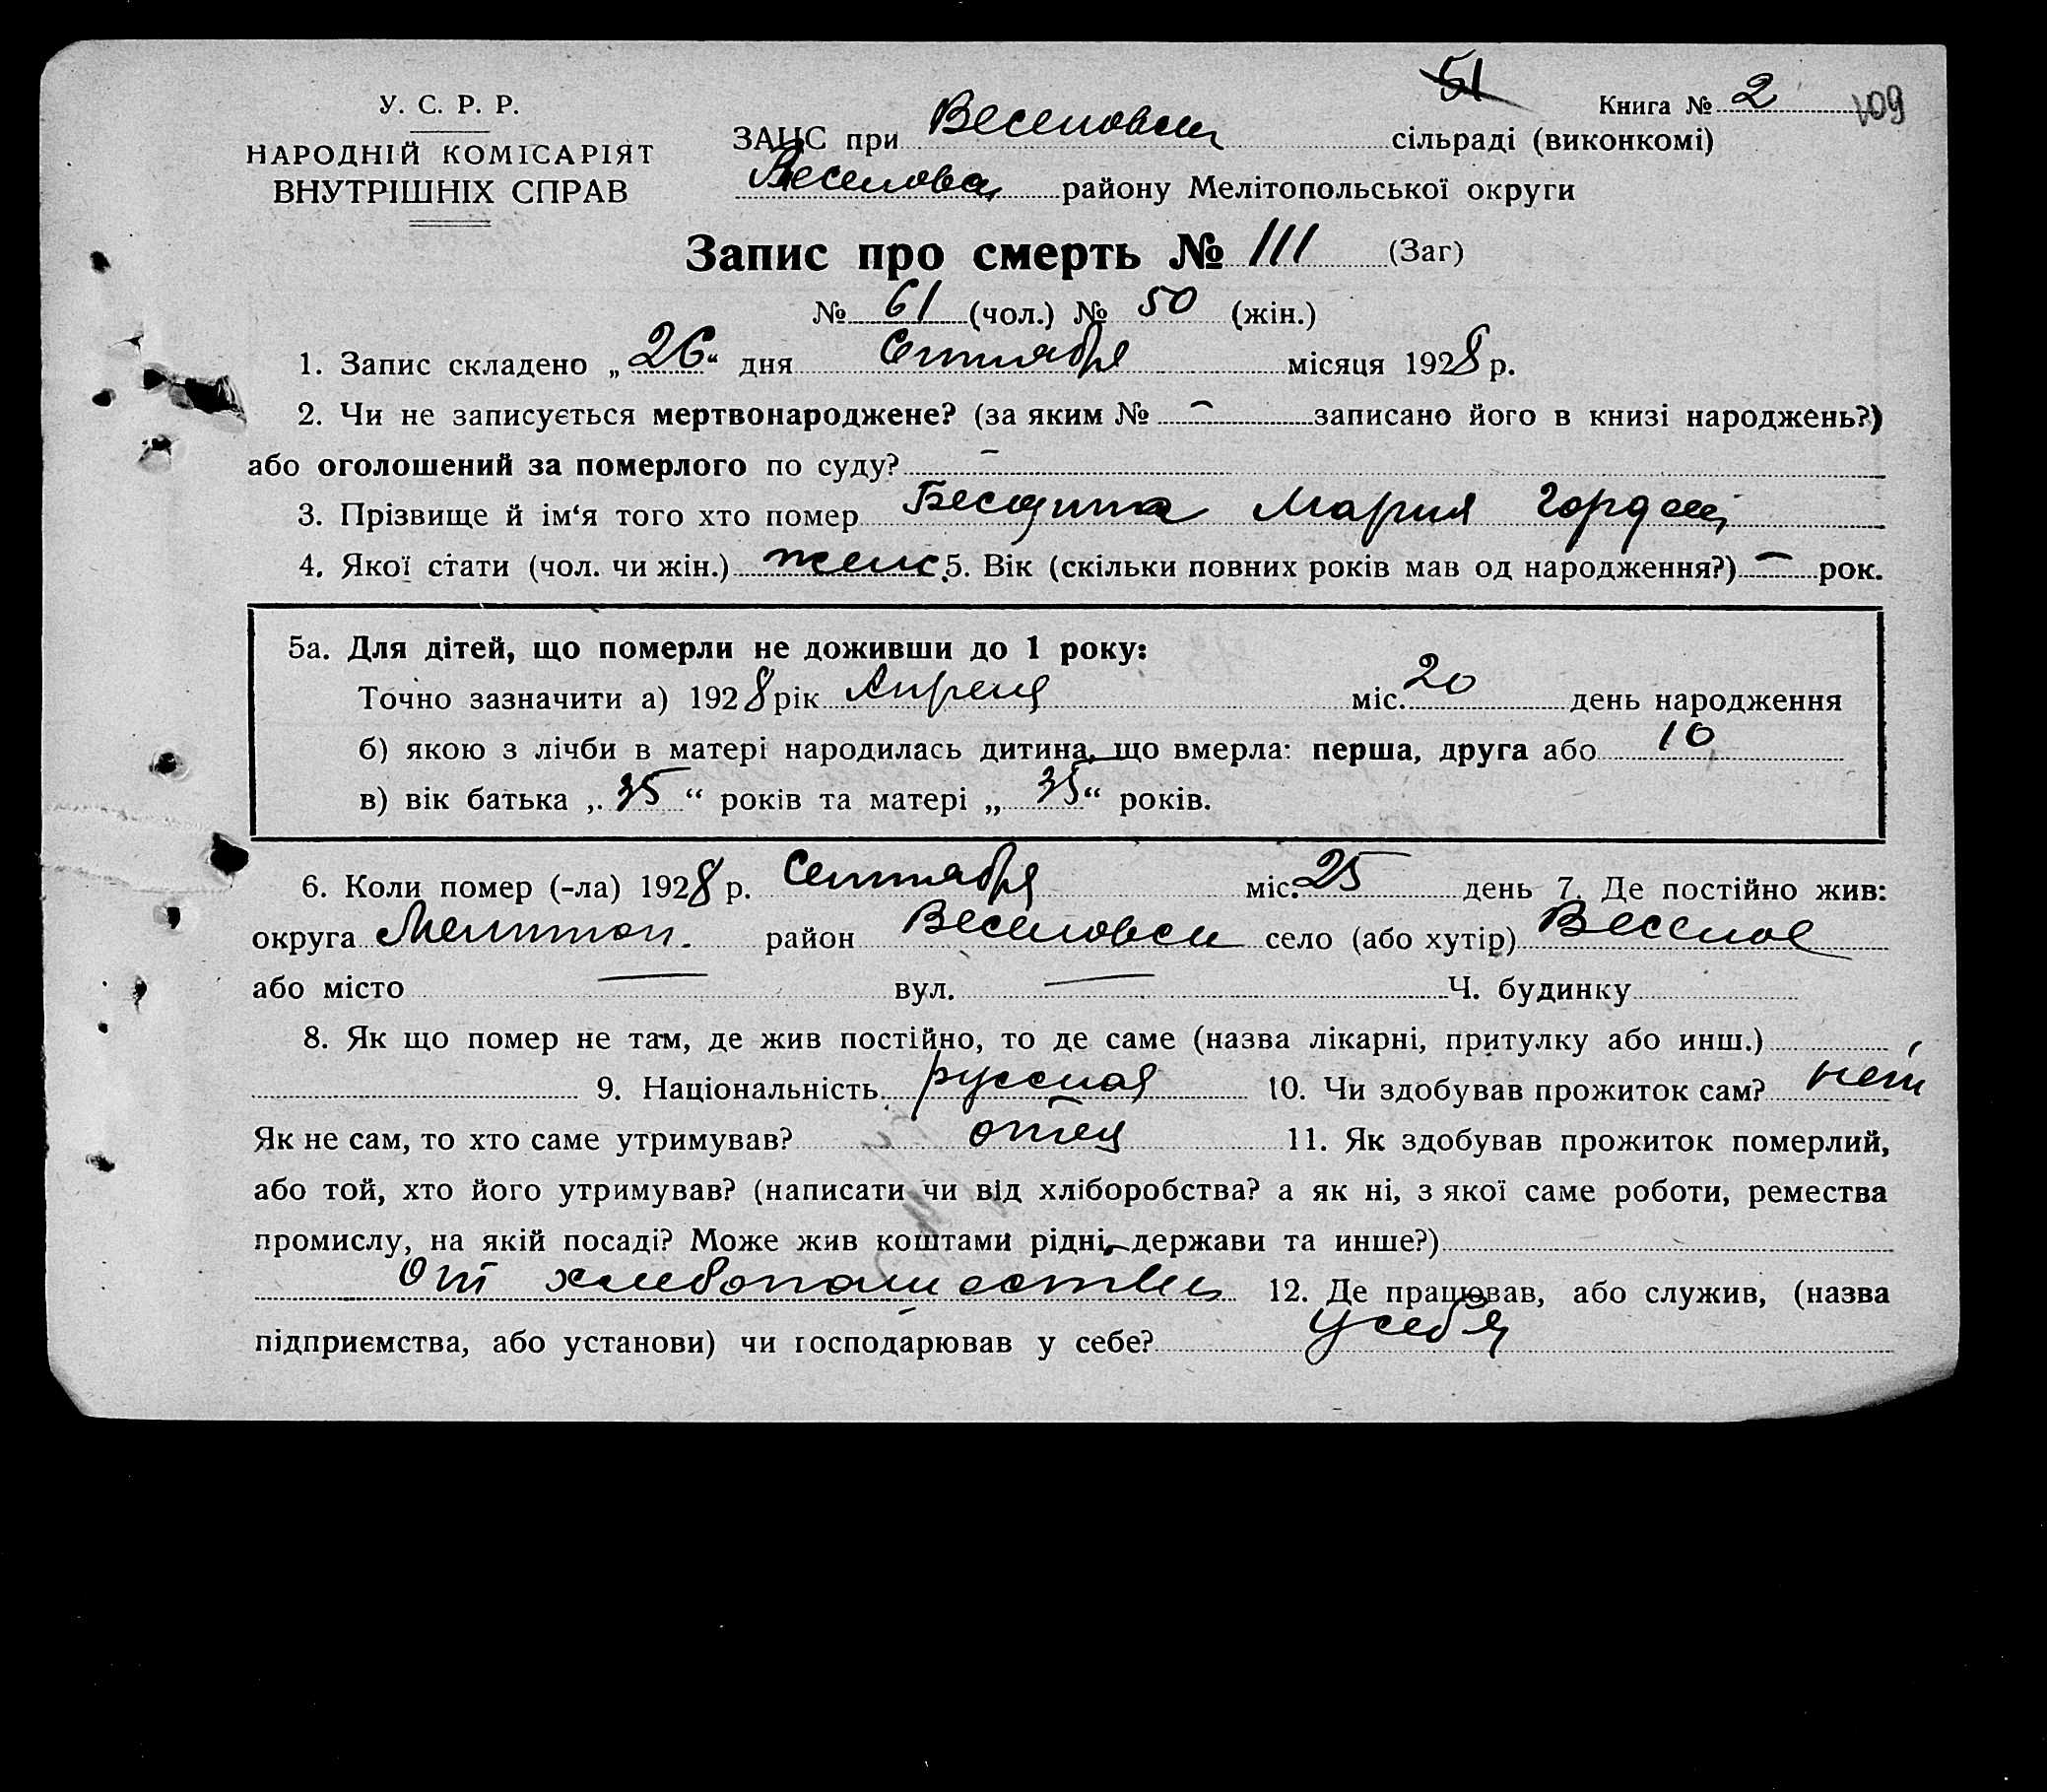 51
У. С. Р. Р.
Книга № 2 109
НАРОДНІЙ КОМІСАРІЯТ
ВНУТРІШНІХ СПРАВ
ЗАЦС при Веселовск сільраді (виконкомі)
Веселовск району Мелітопольської округи
Запис про смерть № 111 (Заг)
№ 61 (чол.) № 50 (жін.)
1. Запис складено „26“ дня Сентября місяця 1928 р.
2. Чи не записується мертвонароджене? (за яким № – записано його в книзі народжень?)
або оголошений за померлого по суду? –
3. Прізвище й ім‘я того хто помер Мария Гордеев
4. Якої стати (чол. чи жін.) женс. 5. Вік (скільки повних років мав од народження?) – рок.
5а. Для дітей, що померли не доживши до 1 року:
Точно зазначити а) 1928 рік Апреля міс. 20 день народження
б) якою з лічби в матері народилась дитина, що вмерла: перша, друга або 10
в) вік батька „35“ років та матері „35“ років.
6. Коли помер (-ла) 1928 р. Сентября міс. 25 день 7. Де постійно жив:
округа Мелитоп. район Веселовск село (або хутір) Веселое
або місто — вул. — Ч. будинку
8. Як що помер не там, де жив постійно, то де саме (назва лікарні, притулку або инш.)
9. Національність русская 10. Чи здобував прожиток сам? нет
Як не сам, то хто саме утримував? отец 11. Як здобував прожиток померлий,
або той, хто його утримував? (написати чи від хліборобства? а як ні, з якої саме роботи, ремества
промислу, на якій посаді? Може жив коштами рідні, держави та инше?)
От хлебопашества 12. Де працював, або служив, (назва
підприємства, або установи) чи господарював у себе? У себя